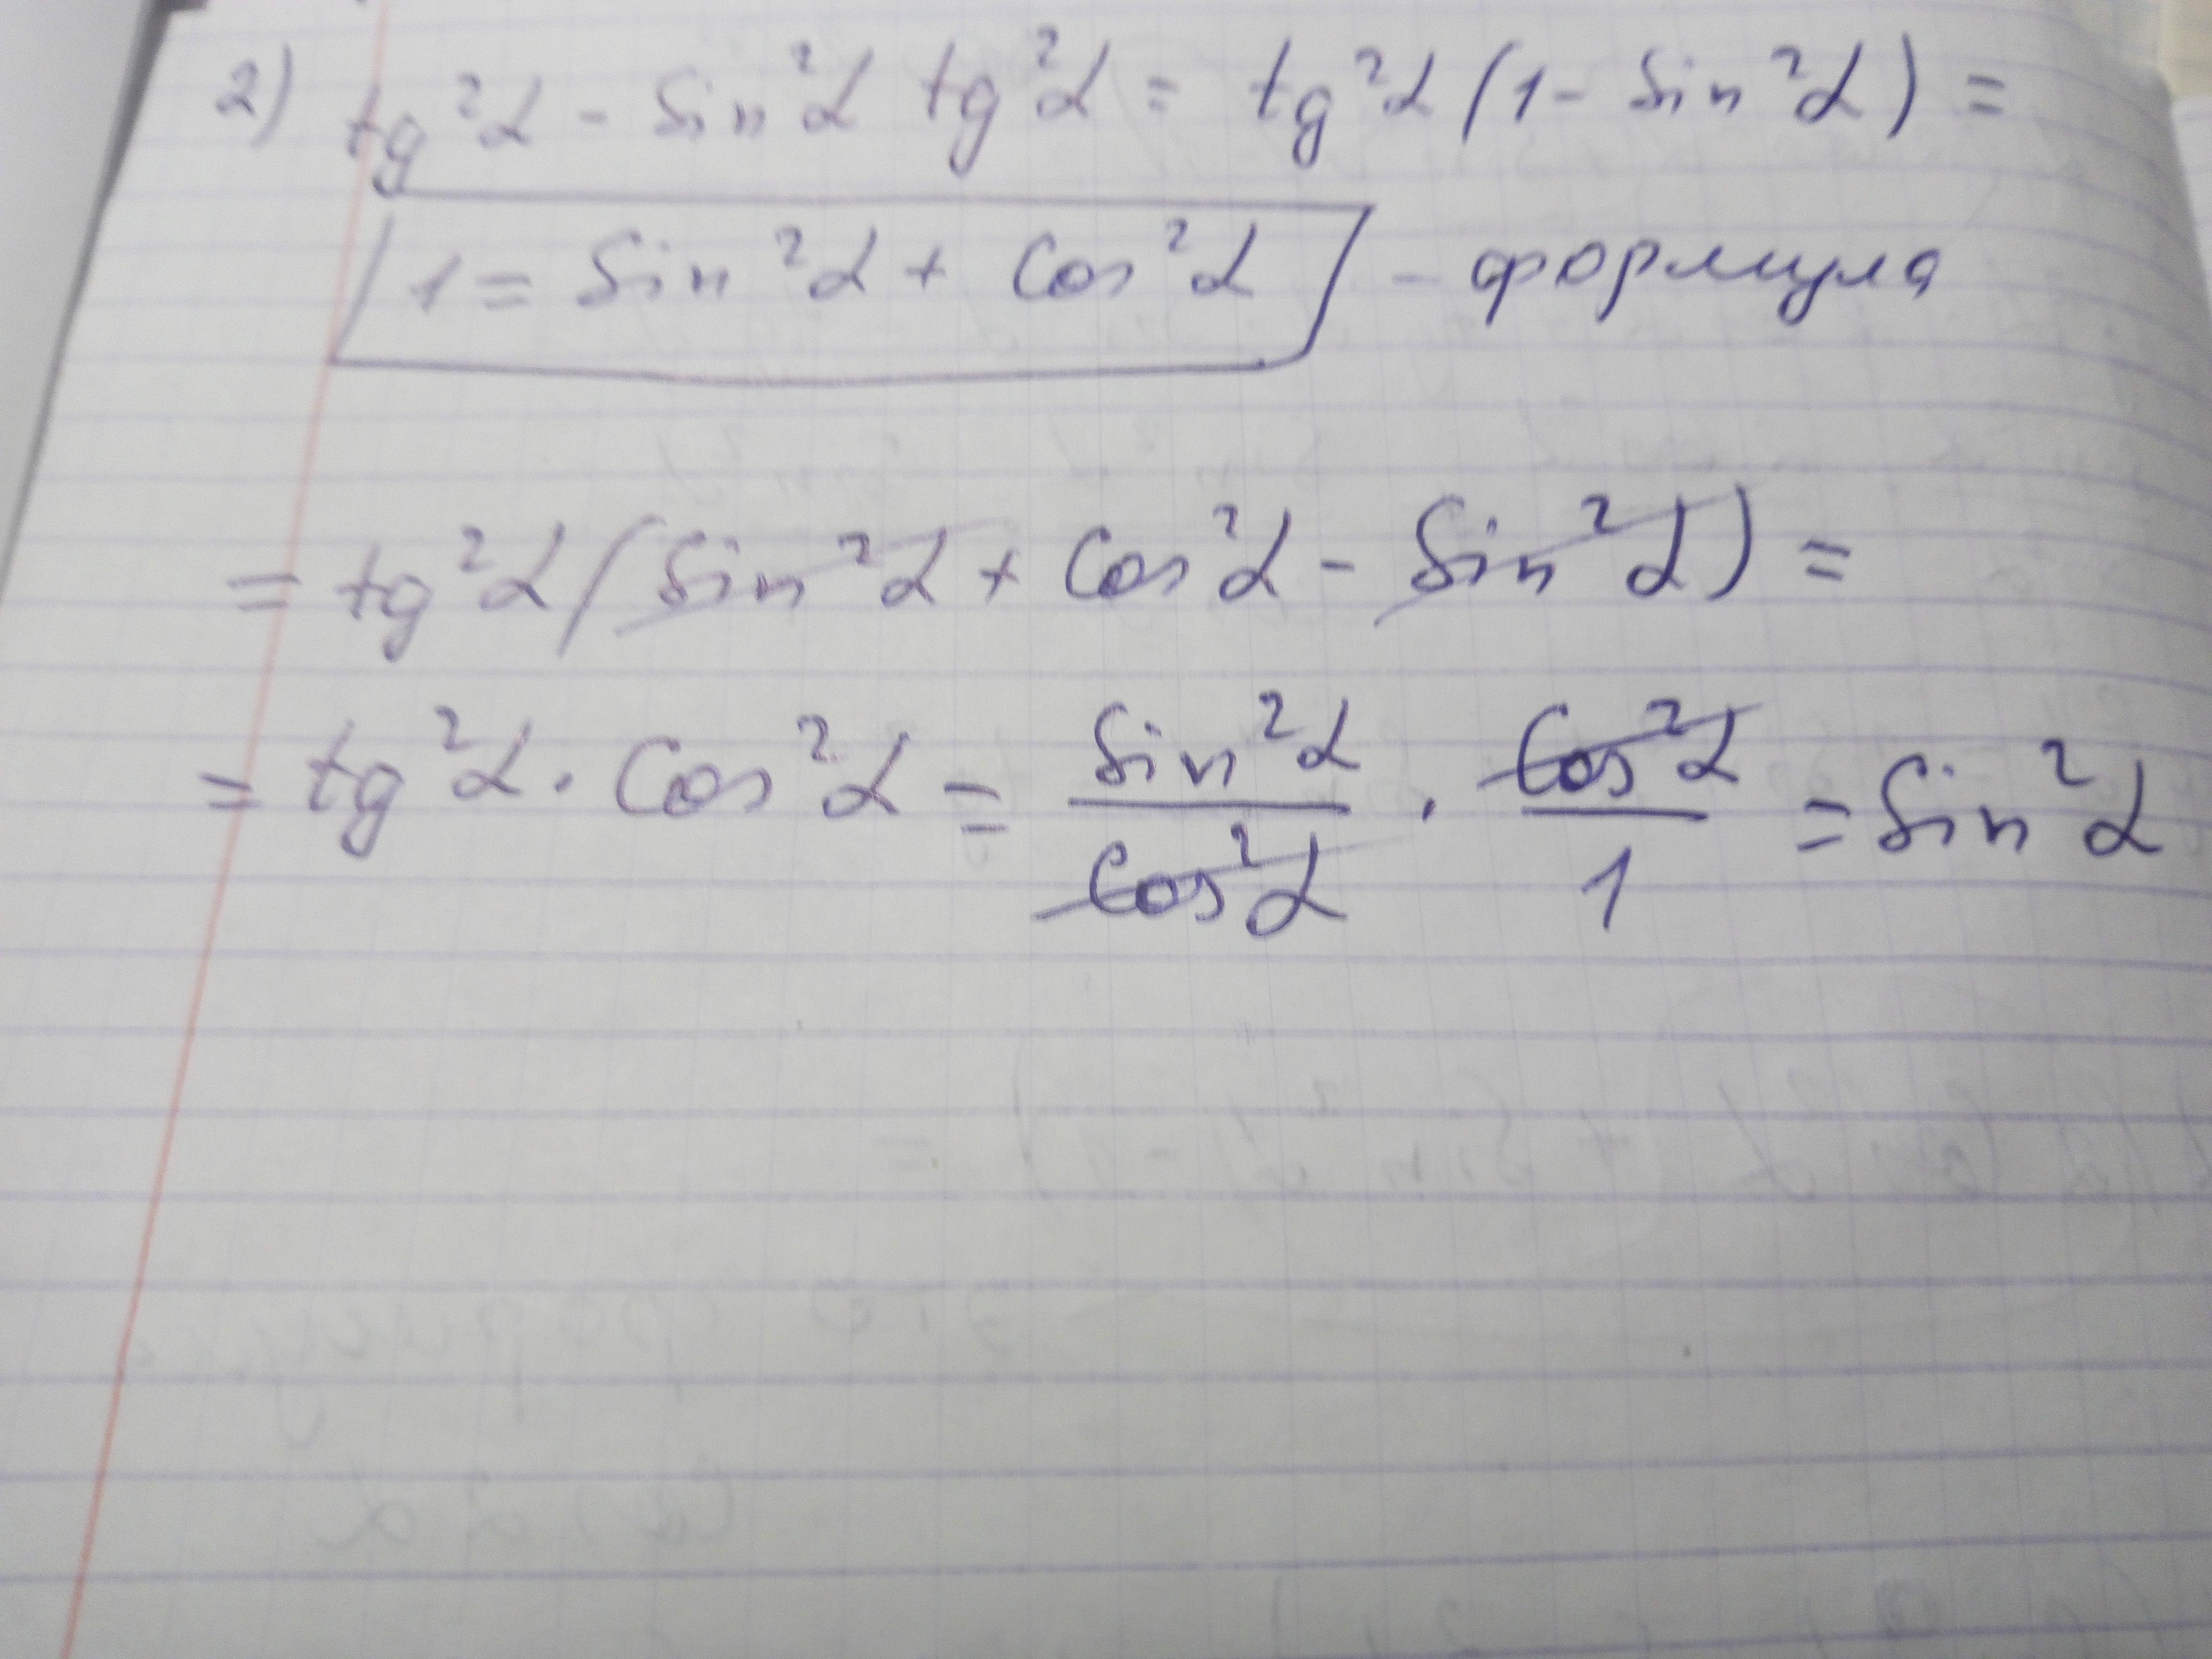 2) tg²α - sin²α tg²α = tg²α (1 - sin²α) =
1 = sin²α + cos²α - формула
= tg²α (sin²α + cos²α - sin²α) =
= tg²α · cos²α = sin²α/cos²α · cos²α/1 = sin²α